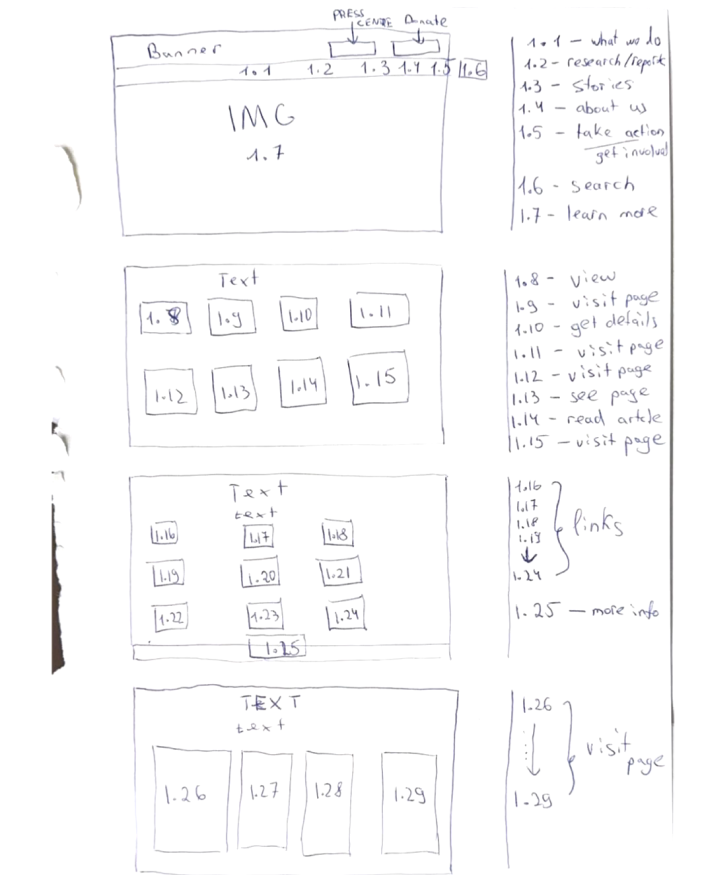 PRESS
CENTRE Donate
Banner
1.1 1.2 1.3 1.4 1.5 1.6
IMG
1.7
1.1 – what we do
1.2 – research/report
1.3 – stories
1.4 – about us
1.5 – take action
get involved
1.6 – search
1.7 – learn more
Text
1.8 1.9 1.10 1.11
1.12 1.13 1.14 1.15
1.8 – view
1.9 – visit page
1.10 – get details
1.11 – visit page
1.12 – visit page
1.13 – see page
1.14 – read article
1.15 – visit page
Text
text
1.16 1.17 1.18
1.19 1.20 1.21
1.22 1.23 1.24
1.25
1.16
1.17
1.18
1.19
↓
1.24
links
1.25 – more info
TEXT
text
1.26 1.27 1.28 1.29
1.26
↓
1.29
visit
page